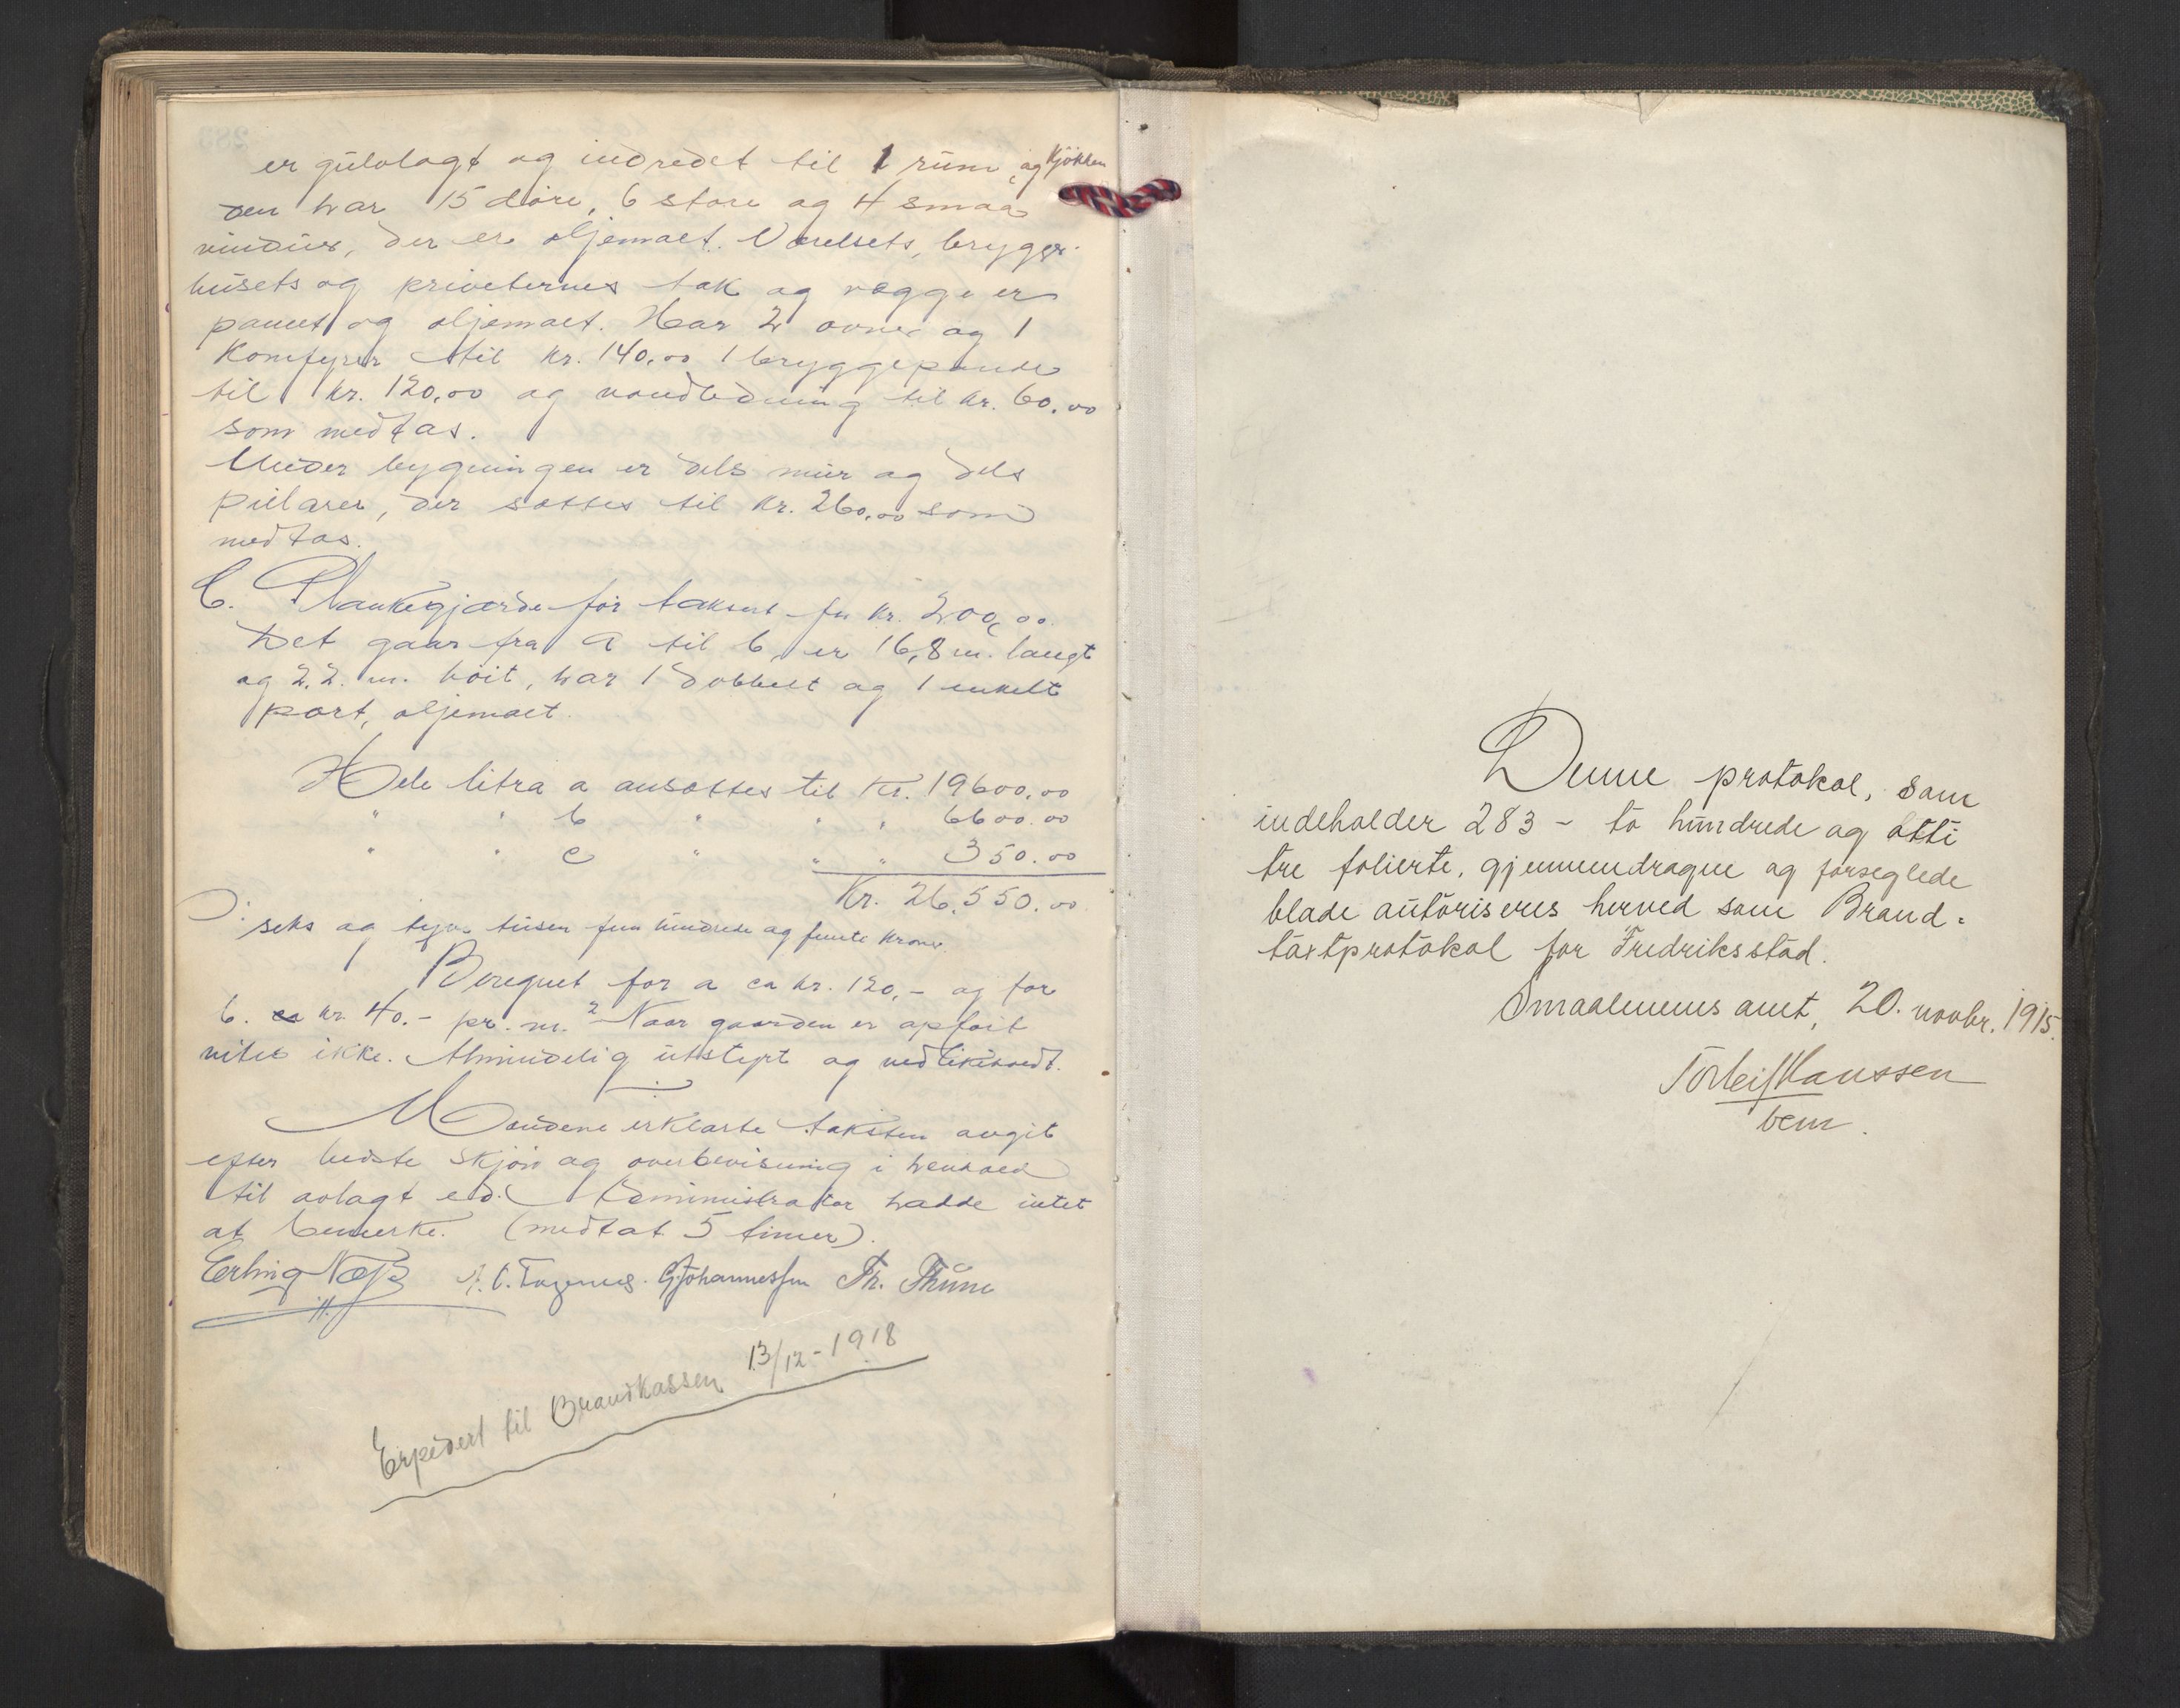 er gulvlagt og indredet til 1 rum, og kjøkken
den har 15 døre, 6 store og 4 smaa
vinduer, der er oljemalt. Værelsets, brygger-
husets og priveternes tak og vægge er
panelt og oljemalt. Har 2 ovner og 1
Komfyrer til kr. 140,00 1 bryggepande
til kr. 120,00 og vandledning til kr. 60,00
som medtas.
Under bygningen er dels mur og dels
pillarer, der sættes til kr. 260,00 som
medtas.
C. Plankegjærde før takseret for kr. 200,00.
Det gaar fra a til b, er 16,8 m. langt
og 2,2 m. høit, har 1 dobbelt og 1 enkelt
port, oljemalt.
Hele litra a ansættes til Kr. 19600,00
" " b " " " 6600.00
" " c " " " 350.00
Kr. 26,550.00
ɔ: seks og tyve tusen fem hundrede og femti kroner.
Beregnet for a ca kr. 120,- og for
b. ca kr. 40.- pr. m.² Naar gaarden er opført
vites ikke. Almindelig utstyrt og vedlikeholdt.
Mændene erklærte taksten avgit
efter bedste skjøn og overbevisning i henhold
til avlagt ed. Administrator hadde intet
at bemerke. (medtat 5 timer).
Erling Næss G. Johannessen Th. Thune
Expedert til Brandkassen 13/12-1918
Denne protokol, som
indeholder 283 - to hundrede og otti
tre folierte, gjennemdragne og forseglede
blade autoriseres herved som Brand-
taxtprotokol for Fredriksstad.
Smaalenenes amt, 20. novbr. 1915.
Torleif Hanssen
bem.